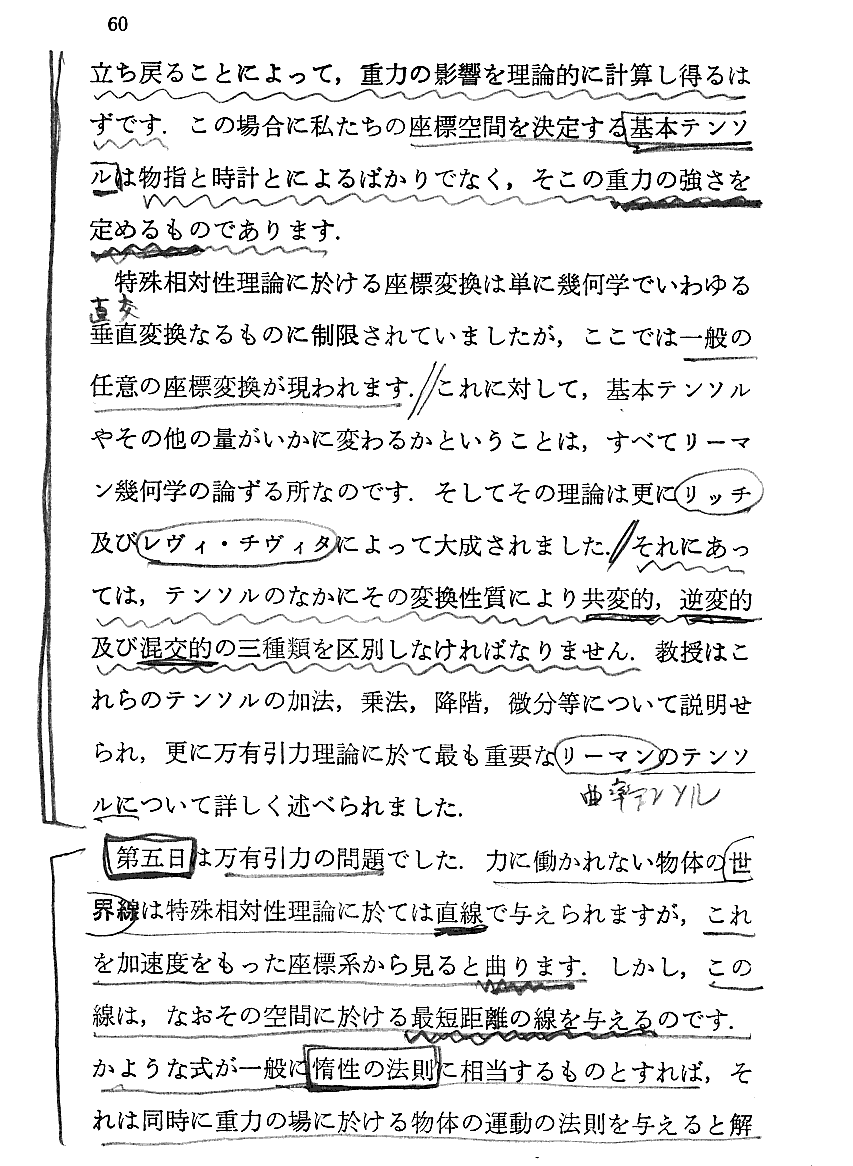 60
立ち戻ることによって，重力の影響を理論的に計算し得るは
ずです．この場合に私たちの座標空間を決定する基本テンソ
ルは物指と時計とによるばかりでなく，そこの重力の強さを
定めるものであります．
特殊相対性理論に於ける座標変換は単に幾何学でいわゆる
直交
垂直変換なるものに制限されていましたが，ここでは一般の
任意の座標変換が現われます．これに対して，基本テンソル
やその他の量がいかに変わるかということは，すべてリーマ
ン幾何学の論ずる所なのです．そしてその理論は更にリッチ
及びレヴィ・チヴィタによって大成されました．それにあっ
ては，テンソルのなかにその変換性質により共変的，逆変的
及び混交的の三種類を区別しなければなりません．教授はこ
れらのテンソルの加法，乗法，降階，微分等について説明せ
られ，更に万有引力理論に於て最も重要なリーマンのテンソ
曲率テンソル
ルについて詳しく述べられました．
第五日は万有引力の問題でした．力に働かれない物体の世
界線は特殊相対性理論に於ては直線で与えられますが，これ
を加速度をもった座標系から見ると曲ります．しかし，この
線は，なおその空間に於ける最短距離の線を与えるのです．
かような式が一般に惰性の法則に相当するものとすれば，そ
れは同時に重力の場に於ける物体の運動の法則を与えると解